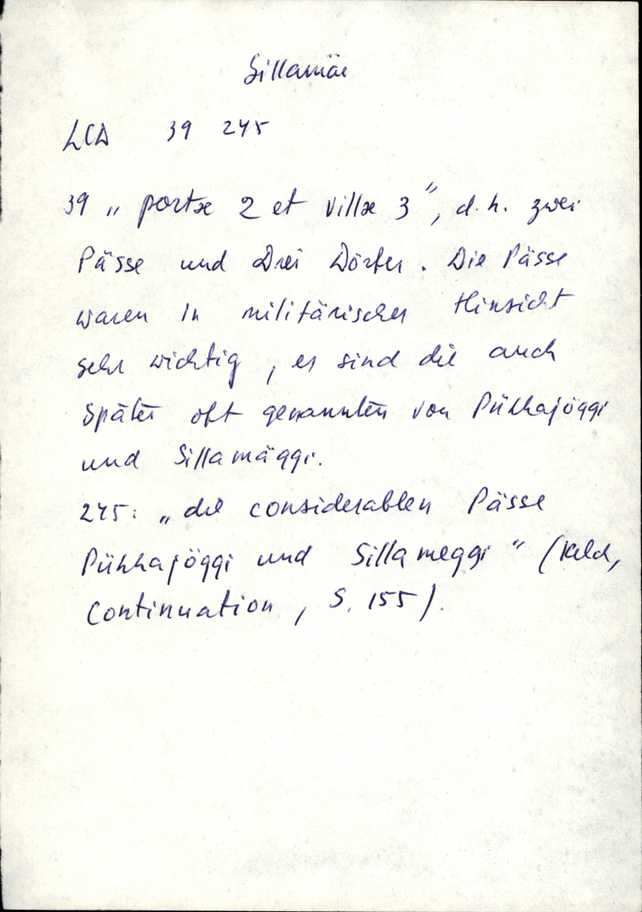 Sillamäe
LCD 39 245
39 „portæ 2 et villæ 3”, d.h. zwei
Pässe und Drei Dörfer. Die Pässe
waren in militärischer Hinsicht
sehr wichtig, es sind die auch
später oft genannten von Pühhajöggi
und Sillamäggi.
245: „die considerablen Pässe
Pühhajöggi und Sillameggi“ (Kelch,
Continuation, S. 155).